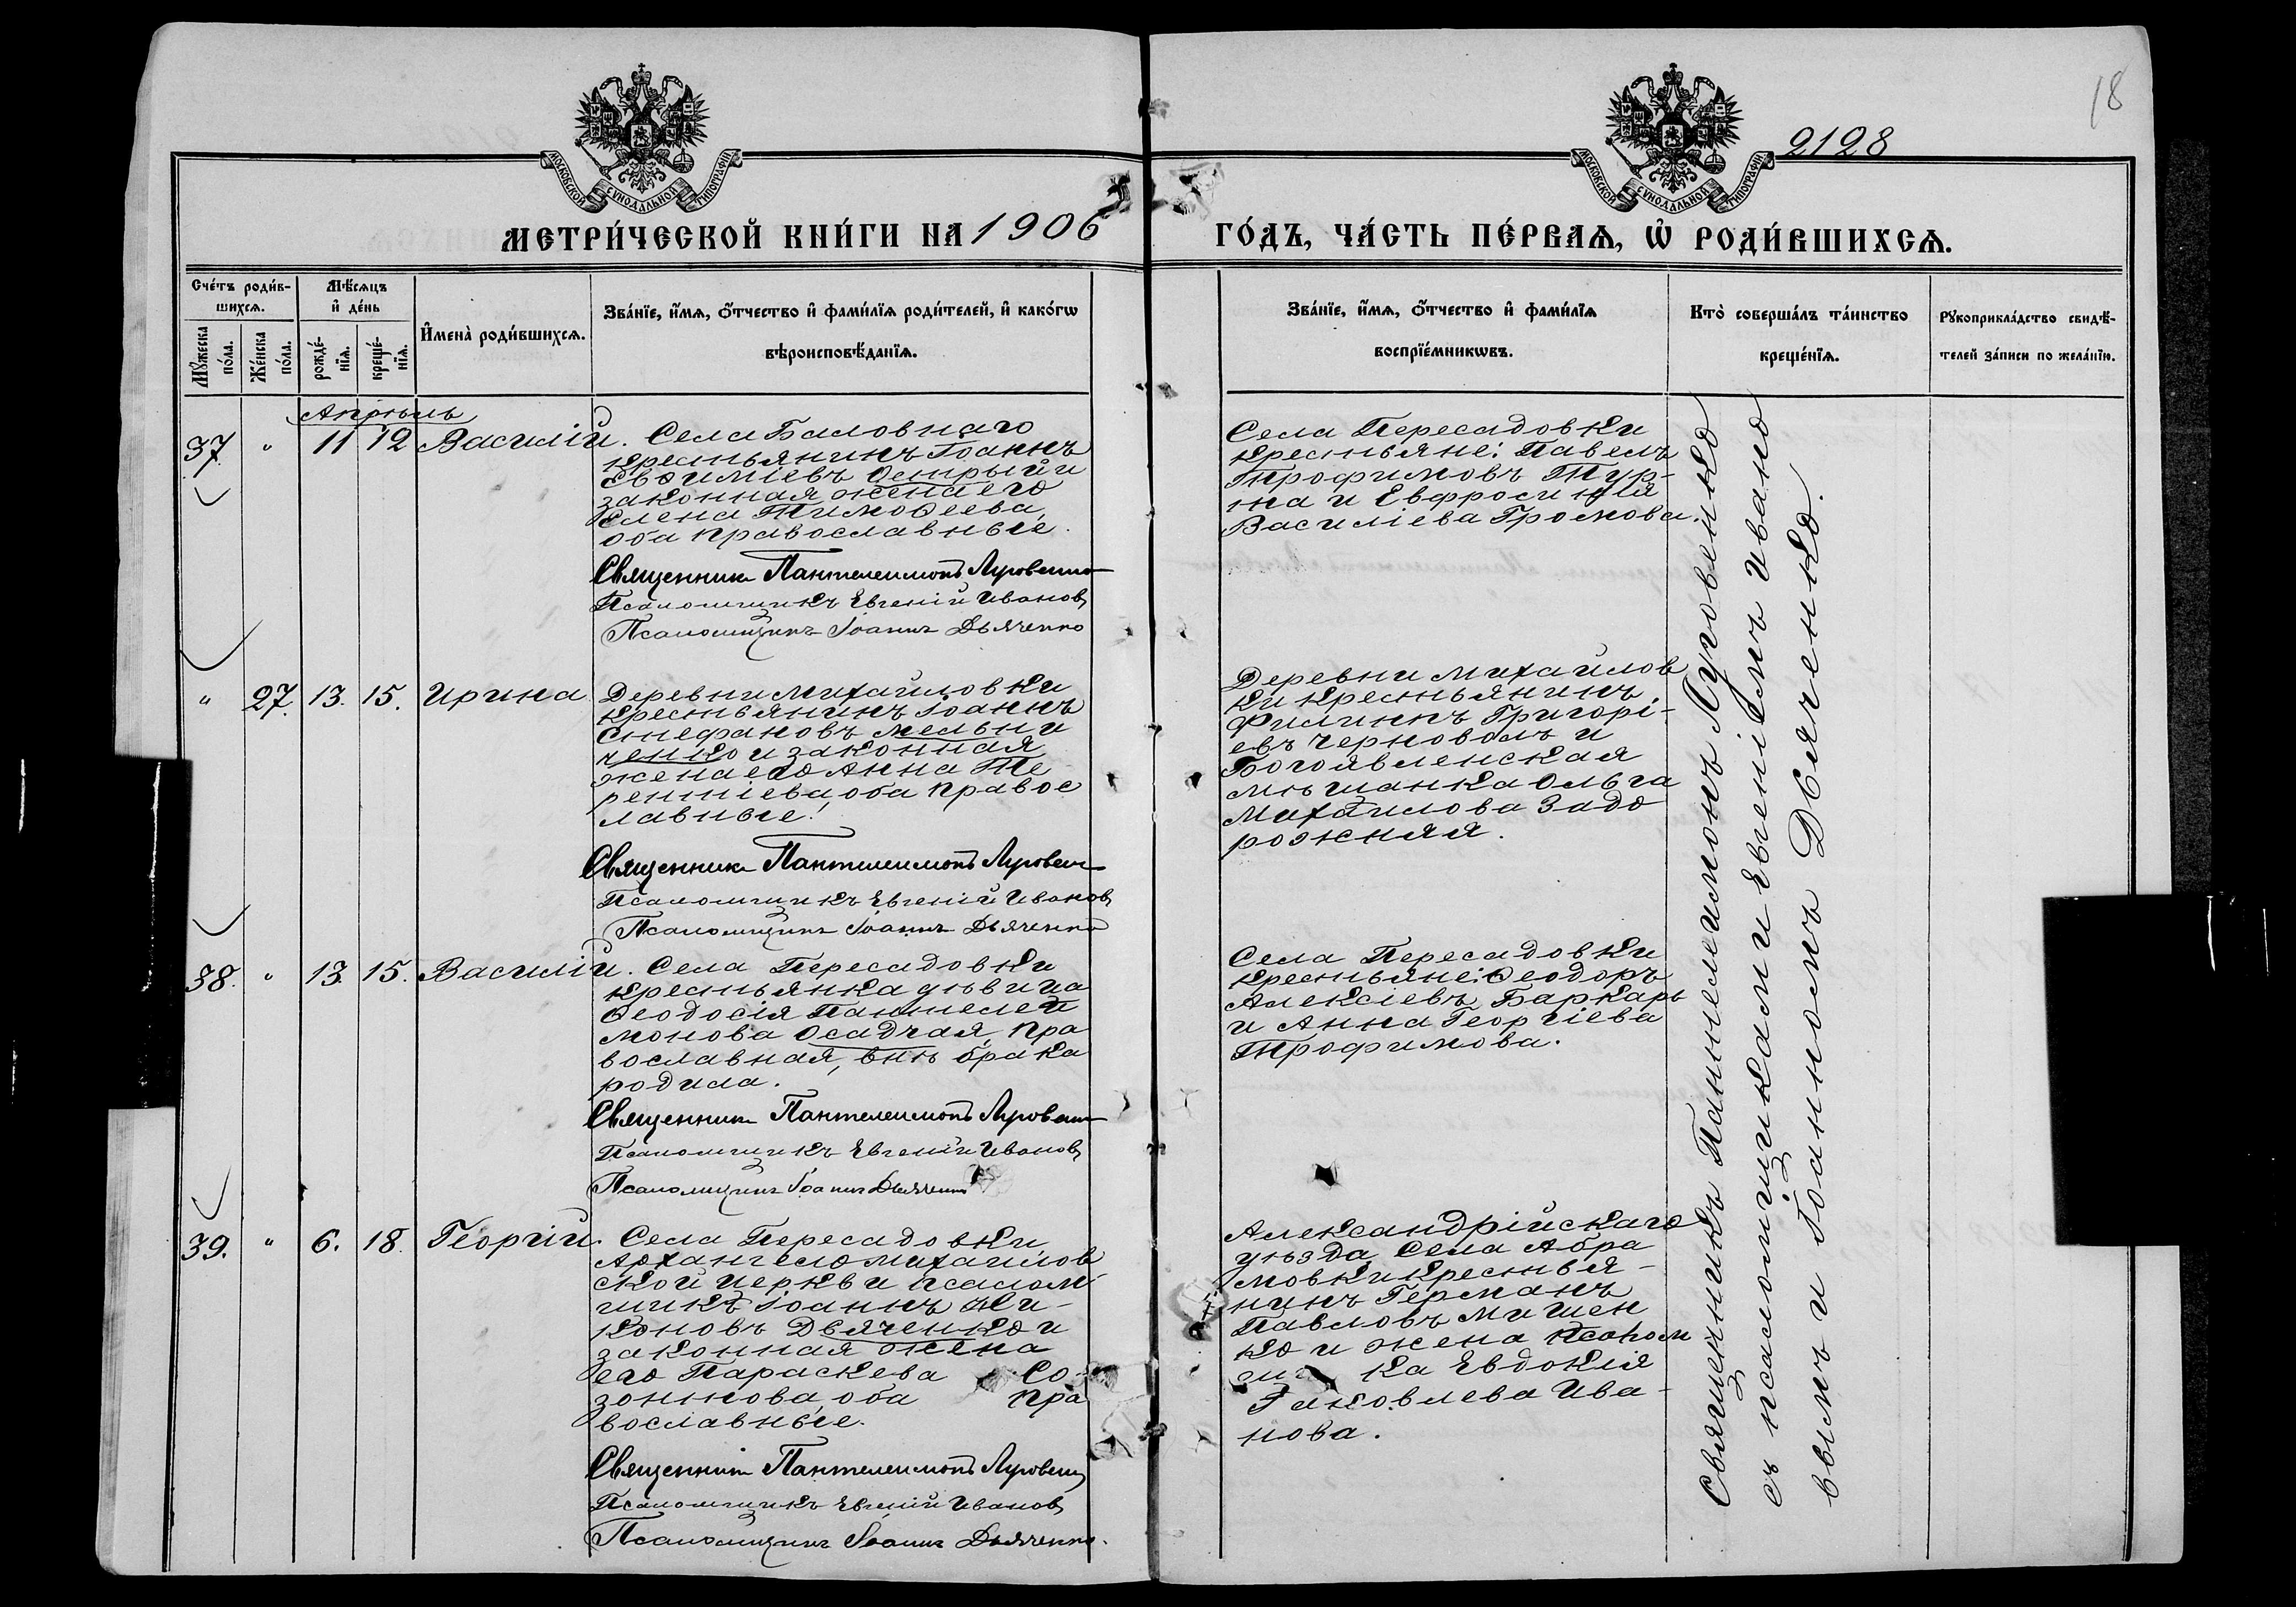 18
2128
МОСКОВСКОЙ СѴНОДАЛЬНОЙ ТИПОГРАФІИ
МОСКОВСКОЙ СѴНОДАЛЬНОЙ ТИПОГРАФІИ
МЕТРИ́ЧЕСКОЙ КНИ́ГИ НА 1906
ГО́ДЪ, ЧА́СТЬ ПЕ́РВАѦ, Ѡ҆ РОДИ́ВШИХСѦ.
Сче́тъ роди́в-
шихсѧ.
Мꙋжеска по́ла.
Же́нска по́ла.
Мѣ́сѧцъ
и҆ де́нь
рожде́-
нїѧ.
креще́-
нїѧ.
И҆мена̀ роди́вшихсѧ.
Зва́нїе, и҆́мѧ, ѻ҆́тчество и҆ фами́лїѧ роди́телей, и҆ како́гѡ
вѣроисповѣ́данїѧ.
Зва́нїе, и҆́мѧ, ѻ҆́тчество и҆ фами́лїѧ
воспрїе́мникѡвъ.
Кто̀ соверша́лъ та́инство
креще́нїѧ.
Рꙋкоприкла́дство свидѣ́-
телей за́писи по жела́нїю.
Апрѣль
37. " 11 12 Василій. Села Баловнаго
крестьянинъ Іоаннъ
Евѳиміевъ Острый и
законная жена его
Елена Тимоѳеева,
оба православные.
Священникъ Пантелеимонъ Луговенко
Псаломщикъ Евгеній Ивановъ
Псаломщикъ Іоаннъ Дьяченко
Села Пересадовки
крестьяне: Павелъ
Трофимовъ Тур-
на и Евфросинія
Василіева Громова.
" 27. 13. 15. Ирина
Деревни Михайловки
крестьянинъ Іоаннъ
Стефановъ Мельни
ченко и законная
жена его Анна Те
рентіева, оба правос
лавные.
Священникъ Пантелеимонъ Луговенко
Псаломщикъ Евгеній Ивановъ
Псаломщикъ Іоаннъ Дьяченко
Деревни Михайлов
ки крестьянинъ
Филиппъ Григорі-
евъ Черноволъ и
Богоявленская
мѣщанка Ольга
Михайлова Задо
рожняя.
38. " 13. 15. Василій. Села Пересадовки
крестьянка дѣвица
Ѳеодосія Пантелей
монова Осадчая, пра
вославная, внѣ брака
родила.
Священникъ Пантелеимонъ Луговенко
Псаломщикъ Евгеній Ивановъ
Псаломщикъ Іоаннъ Дьяченко
Села Пересадовки
крестьяне: Ѳеодоръ
Алексіевъ Баркарь
и Анна Георгіева
Трофимова.
39. " 6. 18. Георгій. Села Пересадовки
Архангело Михайлов
ской церкви псалом-
щикъ Іоаннъ Ни-
коновъ Дьяченко и
законная жена
его Параскева Со-
зонтова, оба пра
вославные.
Священникъ Пантелеимонъ Луговенко
Псаломщикъ Евгеній Ивановъ
Псаломщикъ Іоаннъ Дьяченко.
Александрійскаго
уѣзда, Села Абра
мовки крестья-
нинъ Германъ
Павловъ Мишен
ко и жена псалом
щика Евдокія
Яковлева Ива-
нова.
Священникъ Пантелеимонъ Луговенко
съ псаломщиками Евгеніемъ Ивано
вымъ и Іоанномъ Дьяченко.